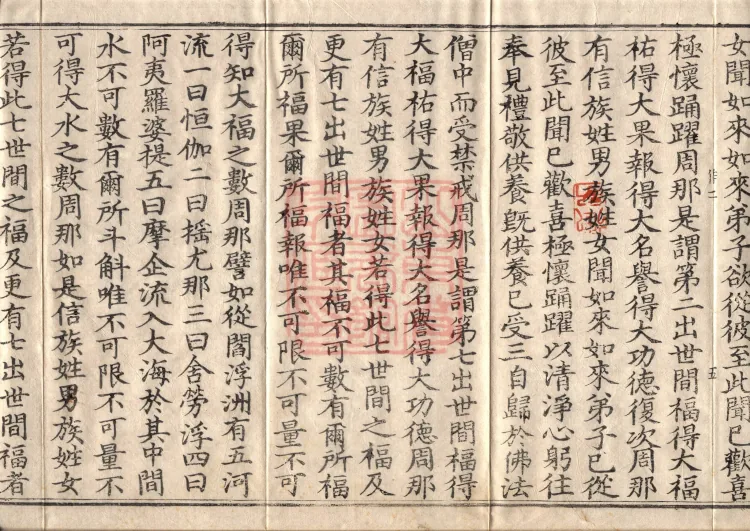 女聞如來如來弟子欲從彼至此聞已歡喜
極懷踊躍周那是謂第二出世間福得大福
祐得大果報得大名譽得大功德復次周那
有信族姓男族姓女聞如來如來弟子已從
彼至此聞已歡喜極懷踊躍以清淨心躬往
奉見禮敬供養既供養已受三自歸於佛法
僧中而受禁戒周那是謂第七出世間福得
大福祐得大果報得大名譽得大功德周那
有信族姓男族姓女若得此七世間之福及
更有七出世間福者其福不可數有爾所福
爾所福果爾所福報唯不可限不可量不可
得知大福之數周那譬如從閻浮洲有五河
流一曰恒伽二曰搖尤那三曰舍勞浮四曰
阿夷羅婆提五曰摩企流入大海於其中間
水不可數有爾所斗斛唯不可限不可量不
可得大水之數周那如是信族姓男族姓女
若得此七世間之福及更有七出世間福者
作二
五